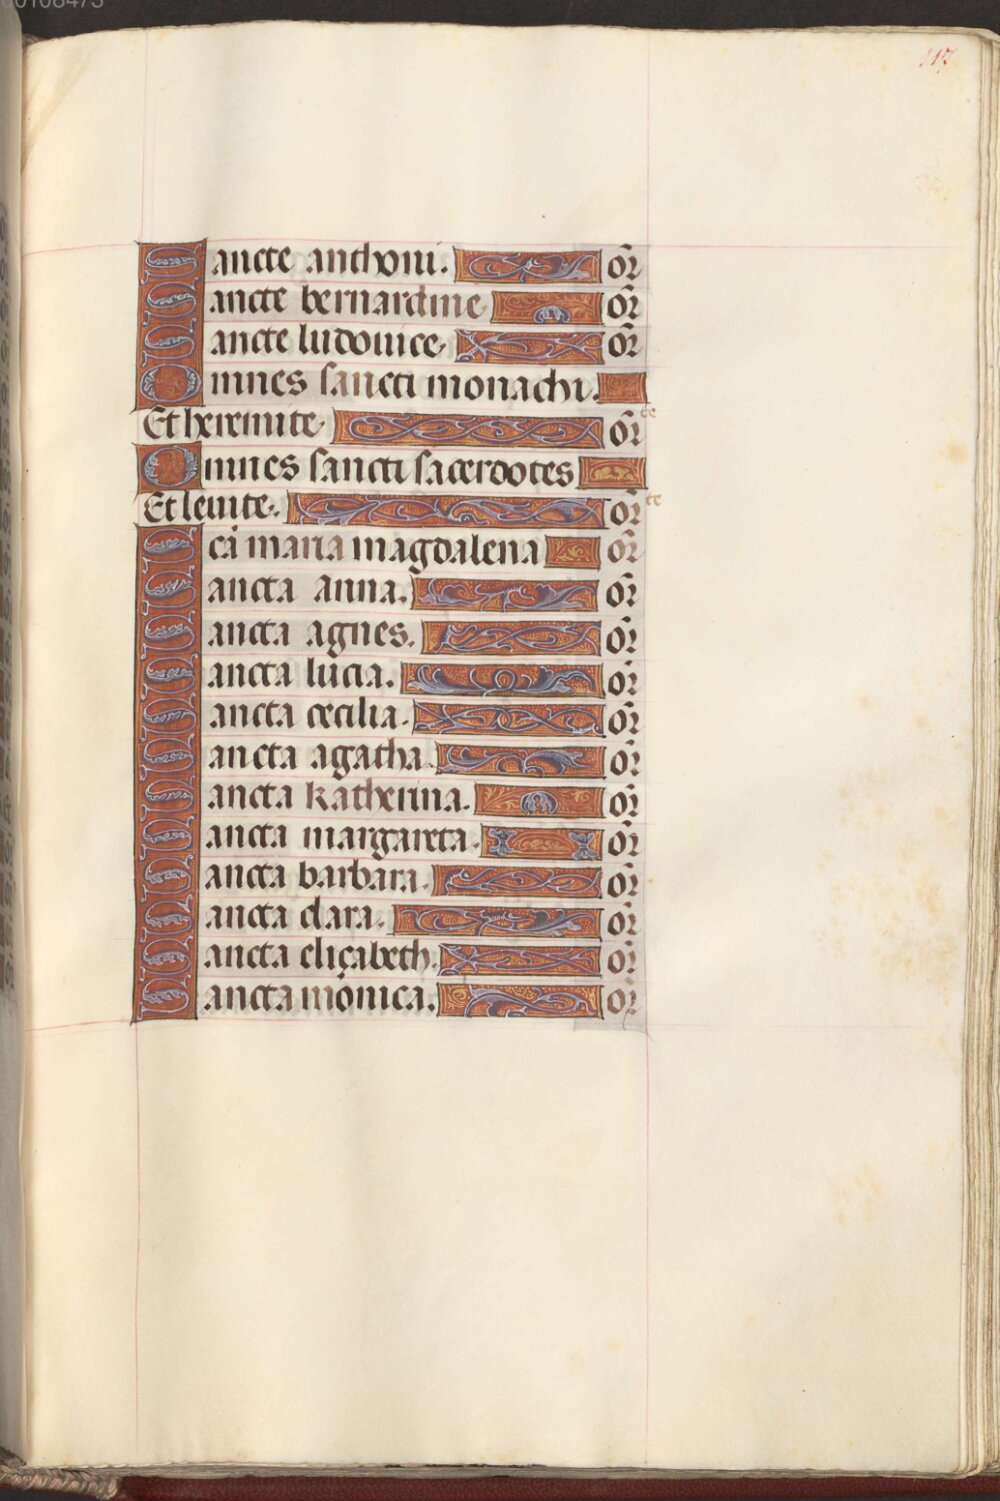 117
Sancte anthoni. or̄
Sancte bernardine or̄
Sancte ludouice. or̄
Omnes sancti monachi.
Et heremite. or̄ te
Omnes sancti sacerdotes
Et leuite. or̄ te
Scā maria magdalena or̄
Sancta anna. or̄
Sancta agnes. or̄
Sancta lucia. or̄
Sancta cecilia. or̄
Sancta agatha. or̄
Sancta katherina. or̄
Sancta margareta. or̄
Sancta barbara. or̄
Sancta clara. or̄
Sancta eliçabeth. or̄
Sancta monica. or̄